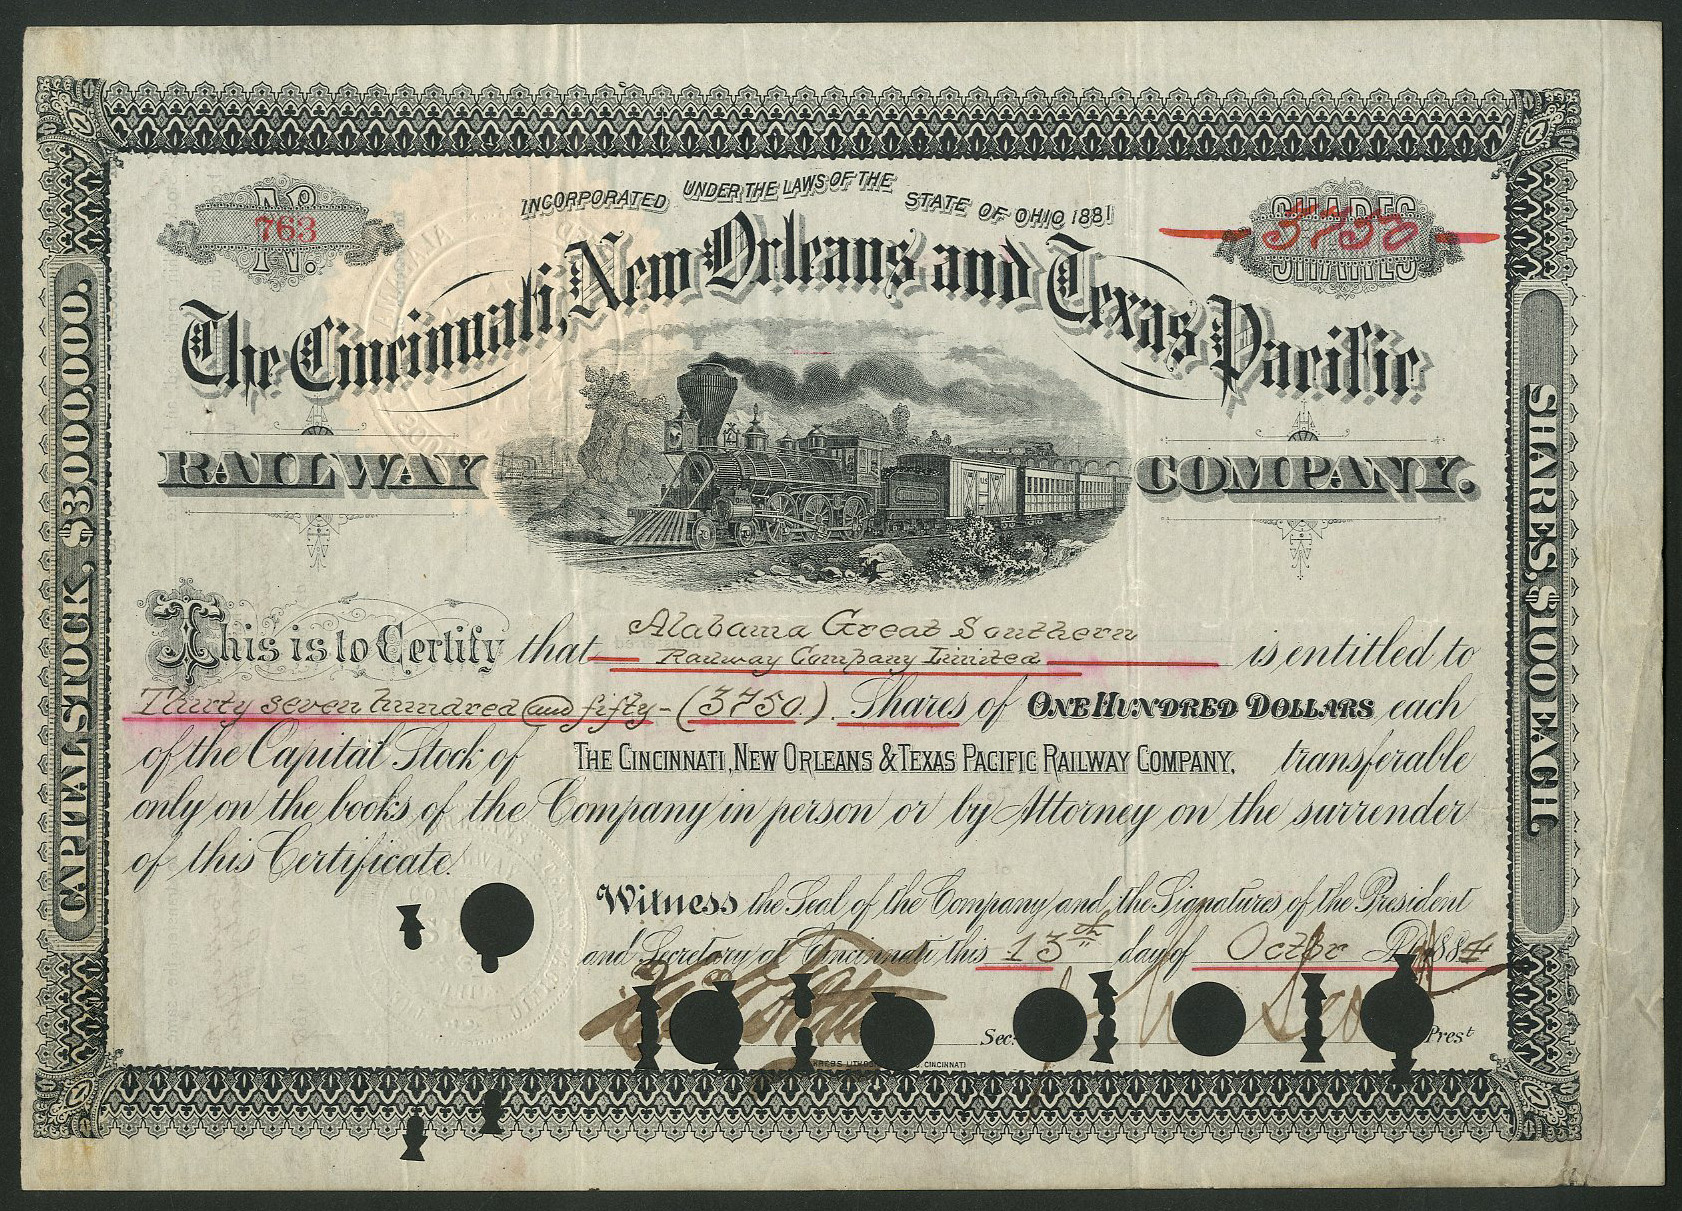 INCORPORATED UNDER THE LAWS OF THE STATE OF OHIO 1881
No.
763
SHARES
3750
SHARES
The Cincinnati, New Orleans and Texas Pacific
RAILWAY COMPANY.
CAPITAL STOCK, $3,000,000.
SHARES, $100 EACH.
This is to Certify that Alabama Great Southern
Railway Company Limited is entitled to
Thirty seven hundred and fifty - (3750). Shares of ONE HUNDRED DOLLARS each
of the Capital Stock of THE CINCINNATI, NEW ORLEANS & TEXAS PACIFIC RAILWAY COMPANY, transferable
only on the books of the Company in person or by Attorney on the surrender
of this Certificate.
Witness the Seal of the Company and the Signatures of the President
and Secretary at Cincinnati this 13th day of Octbr 1884
Sec. Prest
KREBS CINCINNATI